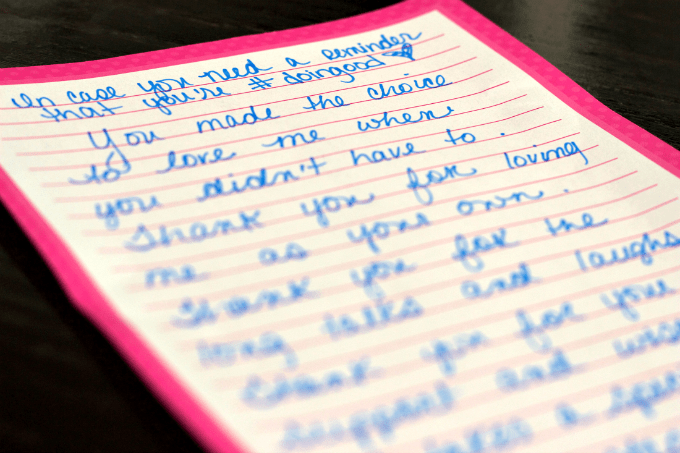 In case you need a reminder
that you're #doingood
You made the choice
to love me when
you didn't have to.
Thank you for loving
me as your own.
Thank you for the
long talks and laughs
Thank you for your
support and
takes a